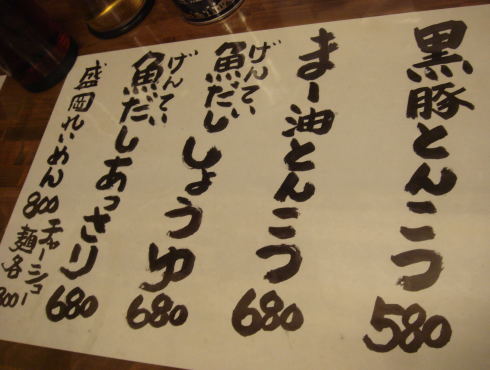 黒豚とんこつ 580
まー油とんこつ 680
げんてい
魚だししょうゆ 680
げんてい
魚だしあっさり 680
盛岡れいめん 800
チャーシュー
麺各